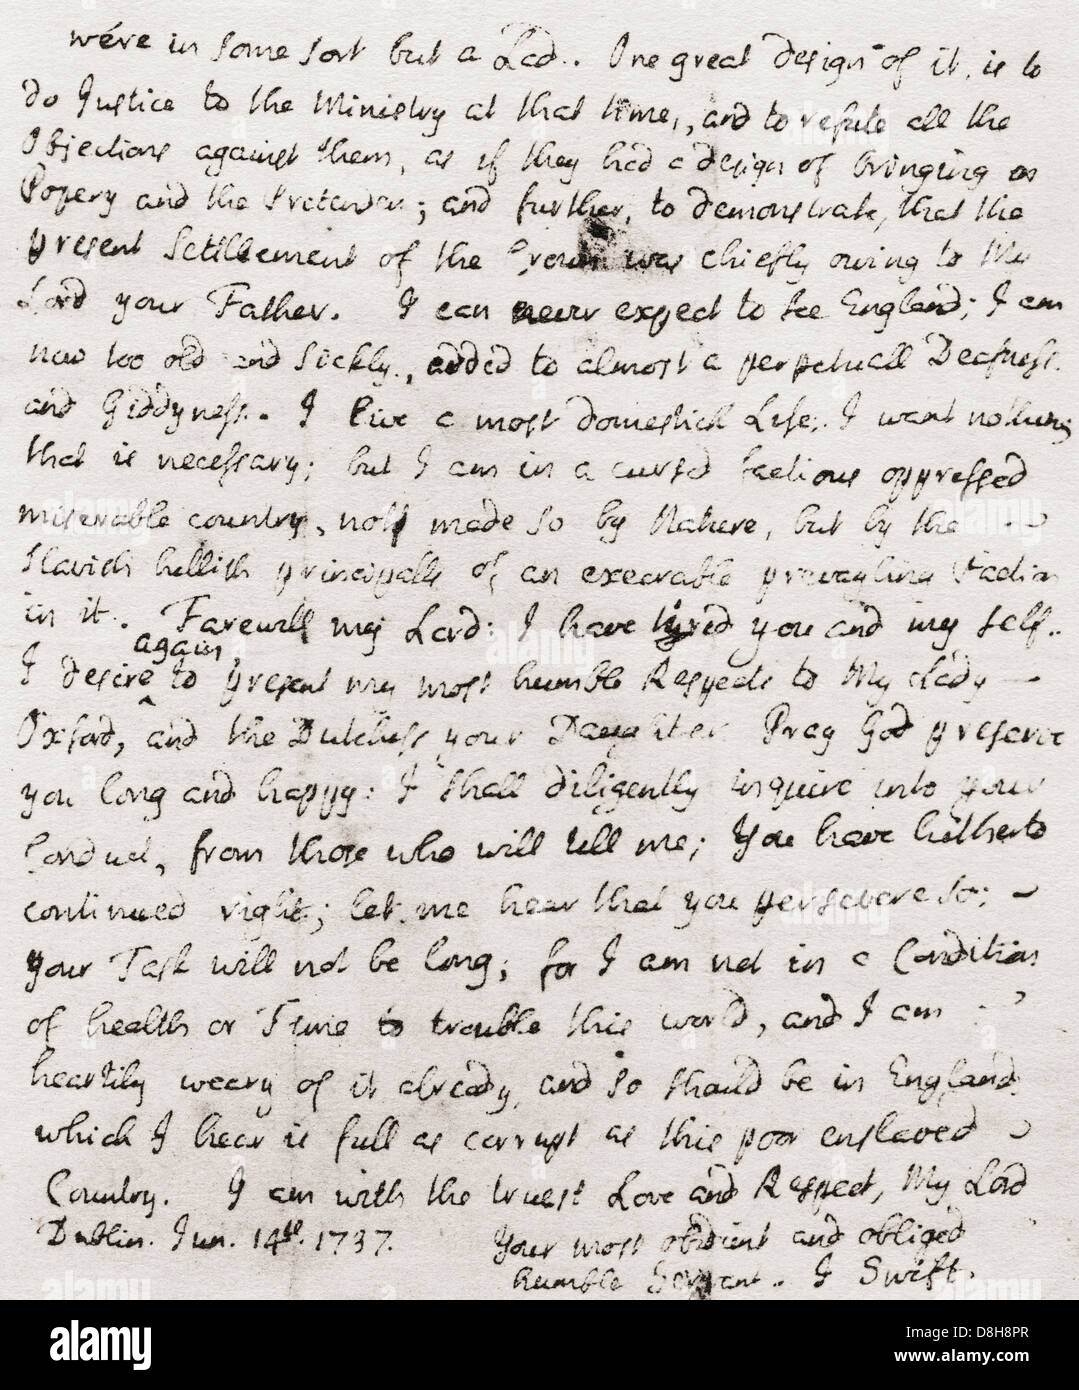 were in some sort but a Lad.. One great design of it, is to
do Justice to the Ministry at that time, and to refute all the
Objections against them, as if they had a design of bringing in
Popery and the Pretender; and further, to demonstrate, that the
present Settlement of the Crown was chiefly owing to My
Lord your Father. I can never expect to see England; I am
now too old and sickly, added to almost a perpetuall Deafness
and Giddyness. I live a most domestick Life; I want nothing
that is necessary; but I am in a cursed factious oppressed
miserable country, not made so by Nature, but by the
slavish hellish principalls of an execrable prevayling Faction
in it. Farewill my Lord; I have tyred you and my self..
again
I desire ‸ to present my most humble Respects to My Lady
Oxford, and the Dutchess your Daughter. Pray God preserve
you long and happy: I shall diligently inquire into your
Conduct, from those who will tell me; You have hitherto
continued right; let me hear that you persevere so;
your Task will not be long; for I am not in a Condition
of health or Time to trouble this world, and I am
heartily weary of it already, and so should be in England
which I hear is full as corrupt as this poor enslaved
Country. I am with the truest Love and Respect, My Lord
Dublin. Jun. 14th. 1737. Your most obedient and obliged
humble Servant.. J Swift.
alamy
Image ID: D8H8PR
www.alamy.com